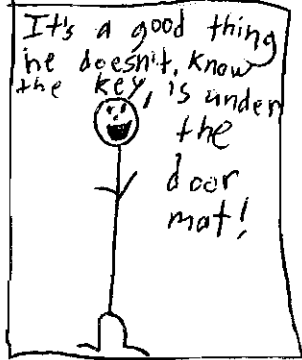 It's a good thing
he doesn't, know
the key, is under
the
door
mat!